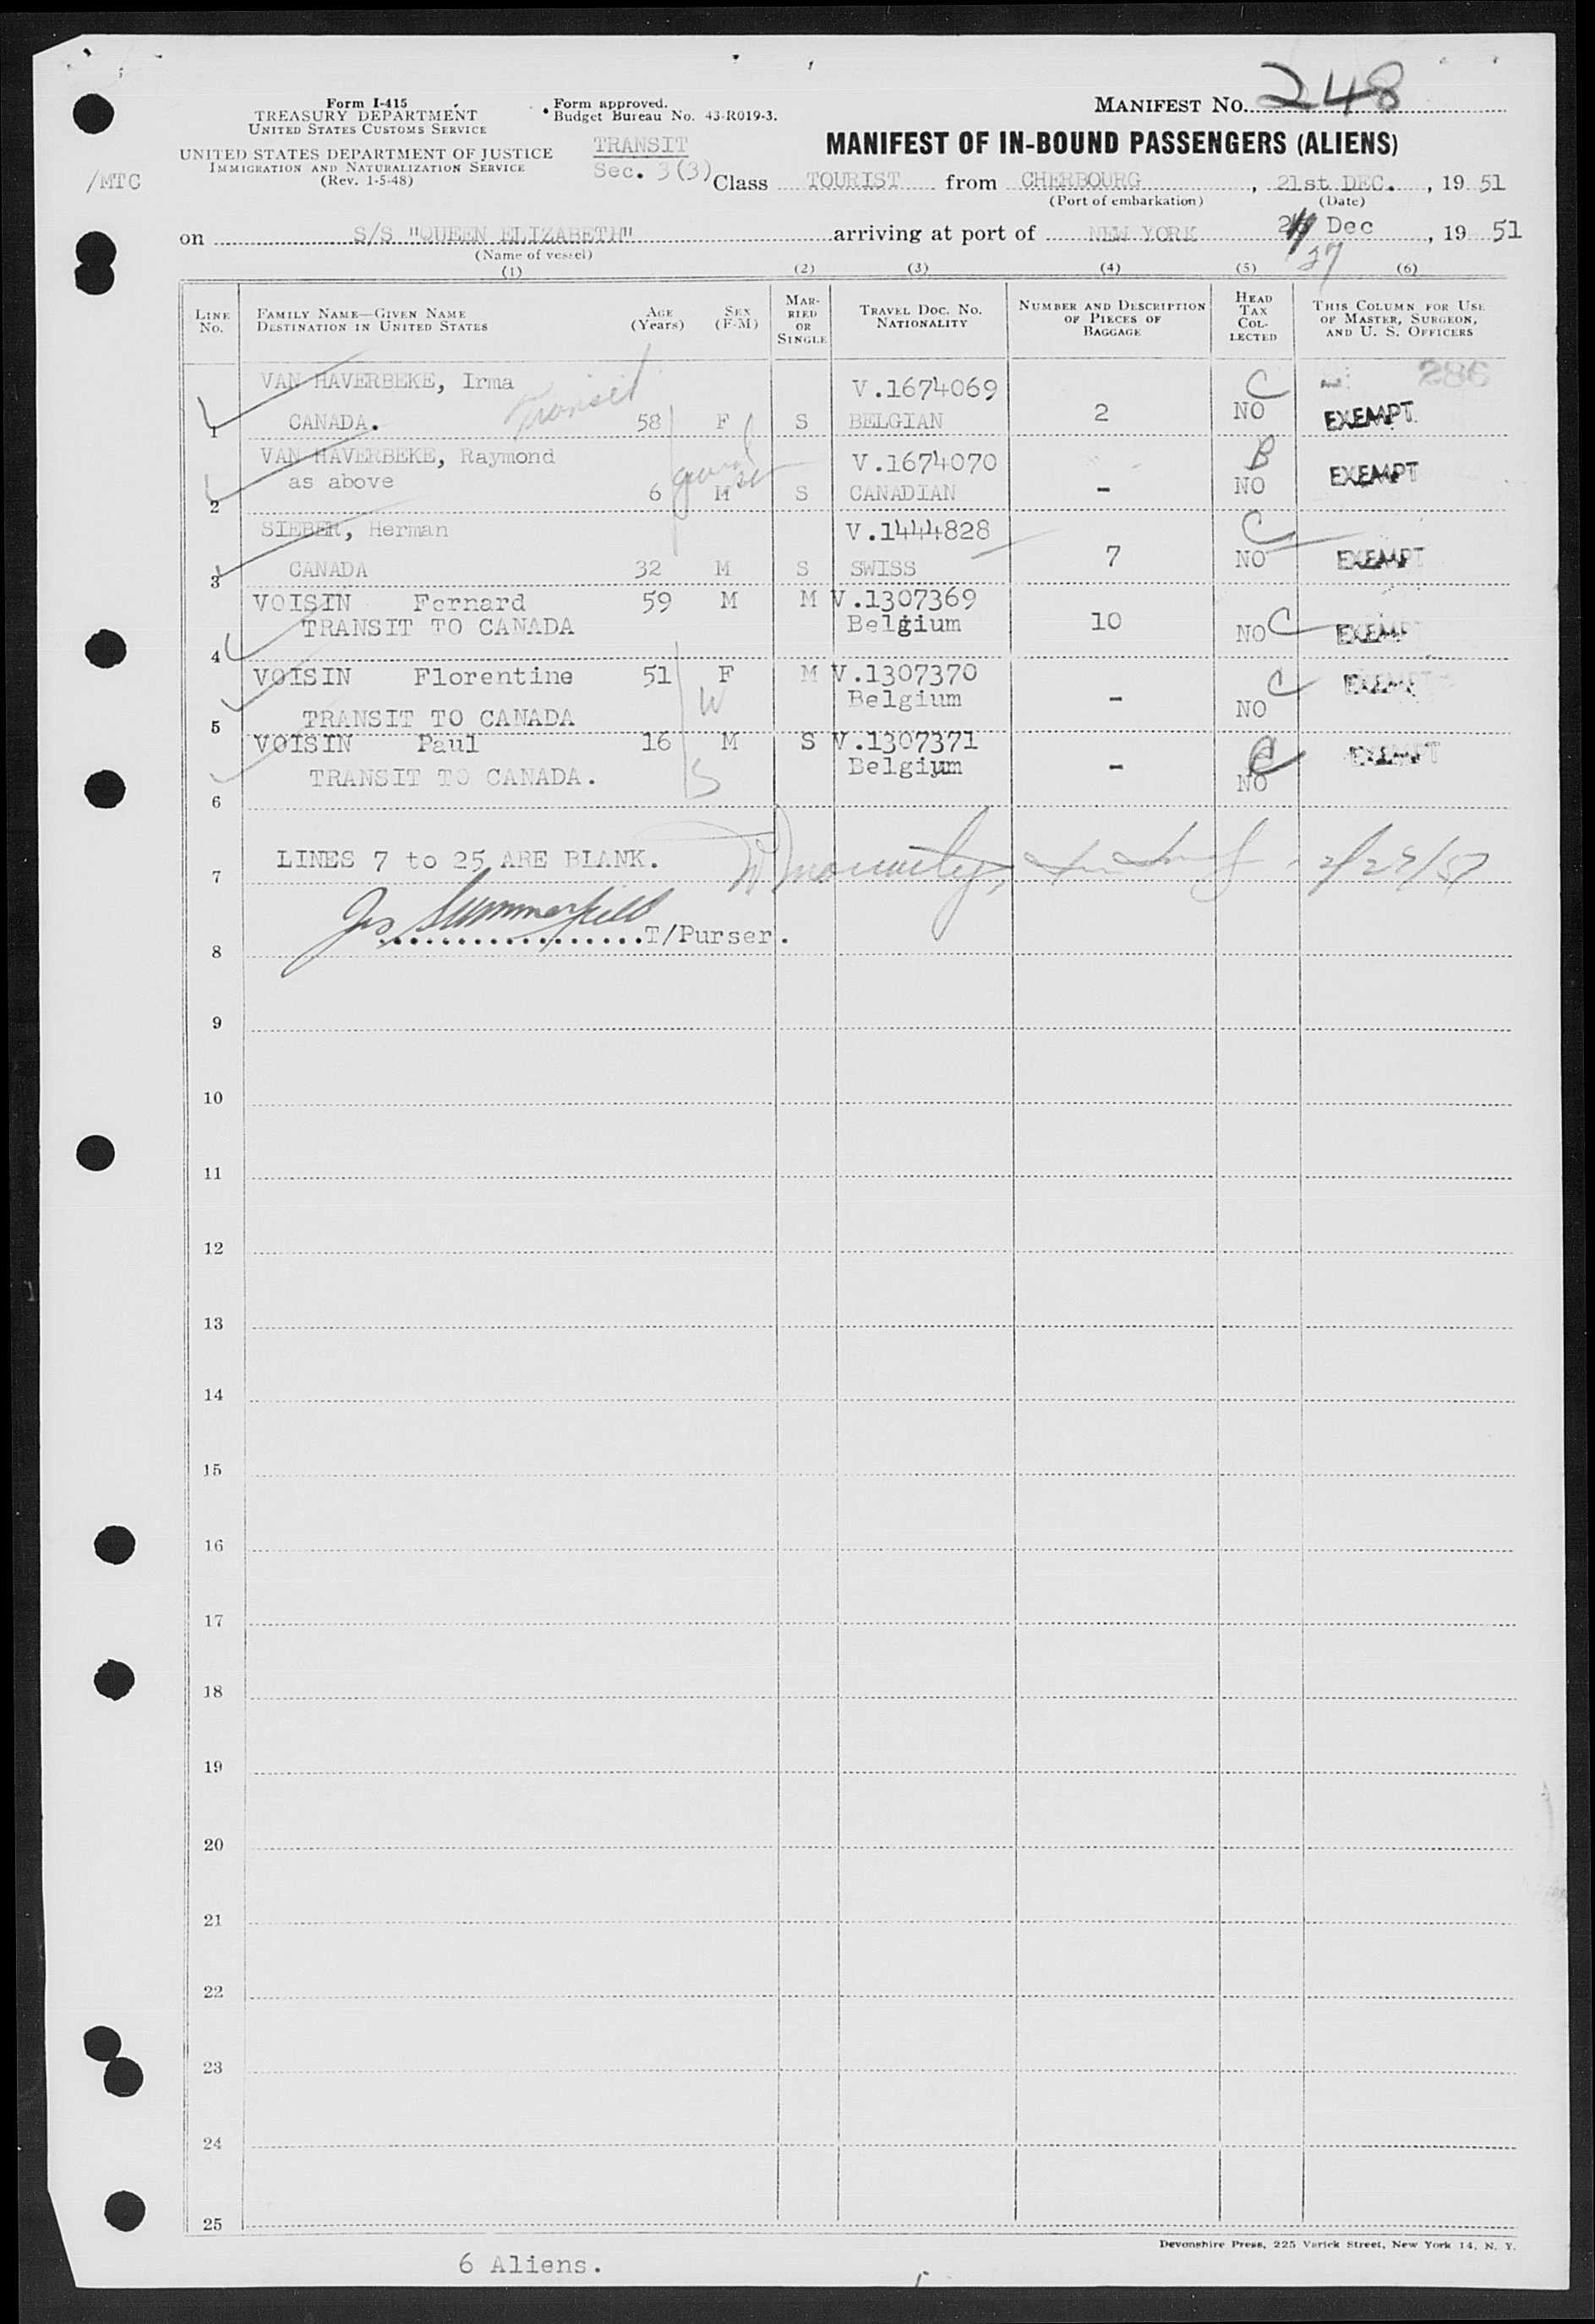 Form I-415
TREASURY DEPARTMENT
UNITED STATES CUSTOMS SERVICE
UNITED STATES DEPARTMENT OF JUSTICE
IMMIGRATION AND NATURALIZATION SERVICE
(Rev. 1-5-48)
/MTC
Form approved.
Budget Bureau No. 43-R019-3.
TRANSIT
Sec. 3(3)
MANIFEST NO. 248
MANIFEST OF IN-BOUND PASSENGERS (ALIENS)
Class TOURIST from CHERBOURG, 21st DEC., 19 51
(Port of embarkation) (Date)
on S/S "QUEEN ELIZABETH" arriving at port of NEW YORK Dec, 19 51
27
(Name of vessel)
(1) (2) (3) (4) (5) (6)
LINE NO. FAMILY NAME—GIVEN NAME DESTINATION IN UNITED STATES AGE (Years) SEX (F-M) MARRIED OR SINGLE TRAVEL DOC. NO. NATIONALITY NUMBER AND DESCRIPTION OF PIECES OF BAGGAGE HEAD TAX COLLECTED THIS COLUMN FOR USE OF MASTER, SURGEON, AND U. S. OFFICERS
VAN HAVERBEKE, Irma Transit V.1674069 C 286
1 CANADA. 58 F S BELGIAN 2 NO EXEMPT
VAN HAVERBEKE, Raymond V.1674070 B EXEMPT
as above
2 6 M S CANADIAN - NO
SIEBER, Herman V.1444828 C
3 CANADA 32 M S SWISS 7 NO EXEMPT
VOISIN Fernard 59 M M V.1307369
TRANSIT TO CANADA Belgium 10 NO C EXEMPT
4
VOISIN Florentine 51 F M V.1307370 C EXEMPT
W Belgium - NO
5 TRANSIT TO CANADA
VOISIN Paul 16 M S V.1307371 C EXEMPT
TRANSIT TO CANADA. S Belgium - NO
6
LINES 7 to 25 ARE BLANK.
7
Jas Summerfield
T/Purser.
8
9
10
11
12
13
14
15
16
17
18
19
20
21
22
23
24
25
Devonshire Press, 225 Varick Street, New York 14, N. Y.
6 Aliens.